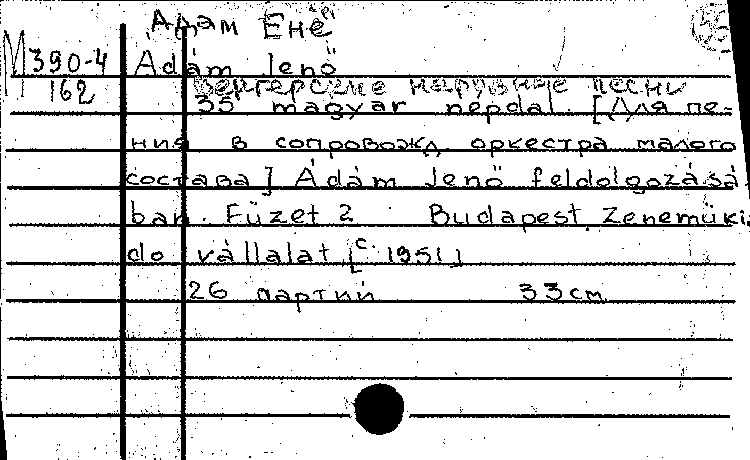 Адам Енё
М390-4 Ádám Jenő
162 Венгерские народные песни
35 magyar népdal. [Для пе-
ния в сопровожд. оркестра малого
состава] Ádám Jenő feldolgozásá
ban. Füzet 2 Budapest, Zeneműki
do vállalat [c. 1951]
26 партий 33 cm